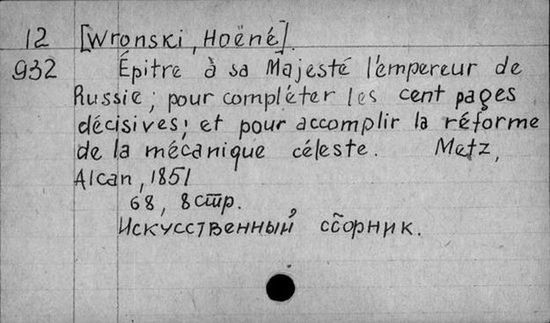 12 [Wronski, Hoëné].
932 Épitre à sa Majesté l'empereur de
Russie; pour compléter les cent pages
décisives; et pour accomplir la réforme
de la mécanique céleste. Metz,
Alcan, 1851
68, 8 стр.
Искусственный сборник.